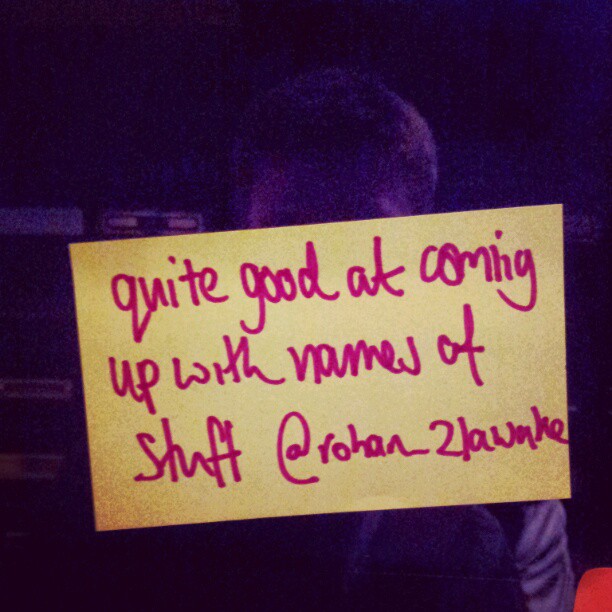 quite good at coming
up with names of
stuff @rohan_21awake